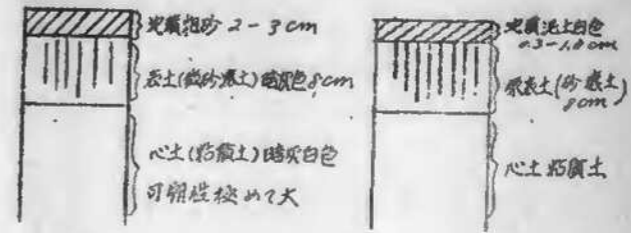 沈積粗砂 2-3cm
表土(微砂壌土)暗灰色8cm
心土(粘質土)暗灰白色
可塑性極めて大
沈積泥土白色
0.3-1.0cm
原表土(砂壌土)
8cm
心土粘質土